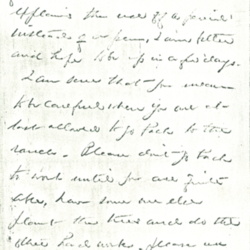 explains the use of a pencil
instead of a pen, I am better
and hope to be up in a few days.
I am sure that you mean
to be careful when you are at
last allowed to go back to the
ranch. Please don't go back
to work until you are quite
able, have some one else
plant the trees and do the
other hard work. Please